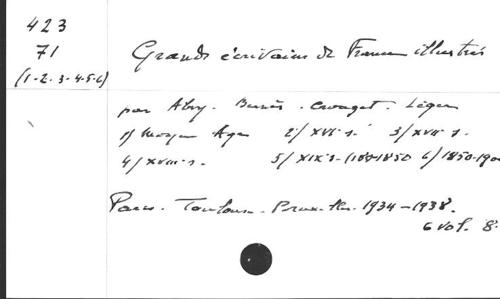 423
71
(1-2-3-4-5-6)
Grands écrivains de France illustrés
par Abry. Crouzet. Léger
1/ Moyen Age 2/ XVIe s. 3/ XVIIe s.
4/ XVIIIe s. 5/ XIXe s. (1800-1850 6/ 1850-190
Paris. Toulouse. Bruxelles. 1934-1938.
6 vol. 8°